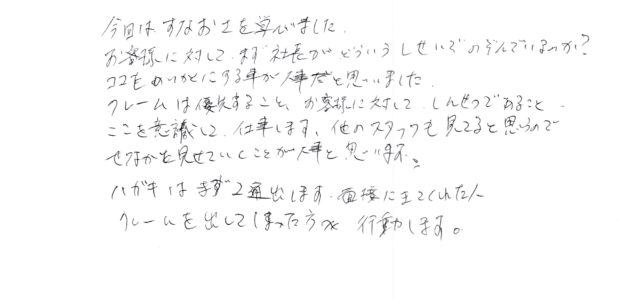 今回はすなおさを学びました.
お客様に対して.まず社長がどういうしせいでのぞんでいるのか?
ココをめいかくにする事が大事だと思いました.
クレームは優先すること、お客様に対して.しんせつであること.
ここを意識して.仕事します、他のスタッフも見てると思うので
せなかを見せていくことが大事と思います。
ハガキはまず2通出します.面接に来てくれた人
クレームを出してしまった方へ 行動します。